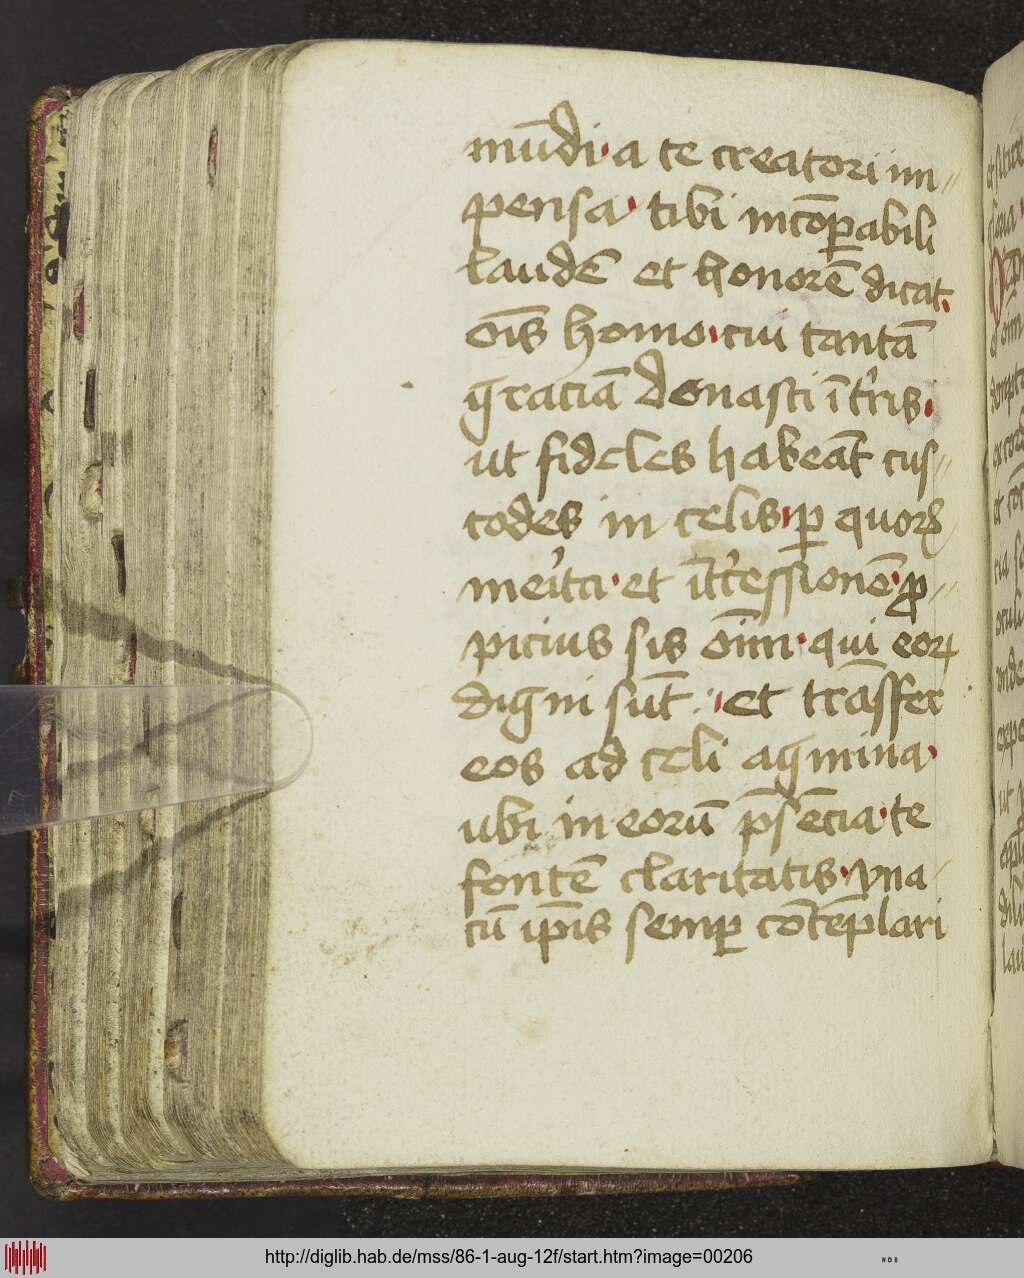 mūdi · a te creatori im〃
pensa · tibi incōꝑabili
laudē et honorē dicat ·
oīs homo · cui tantā
graciā donasti ī t̾ris ·
ut fideles habeāt cus〃
todes in celis · ꝑ quorū
mei̾ti · et īt̾cessionē · ꝓ〃
picius sis oīm · qui eoꝝ
digni sūt · et trāsfer
eos ad celi agmina ·
ubi in eorū p̄sēcia · te
fontē claritatis · vna
cū ip̄is semꝑ cōtēplari
http://diglib.hab.de/mss/86-1-aug-12f/start.htm?image=00206